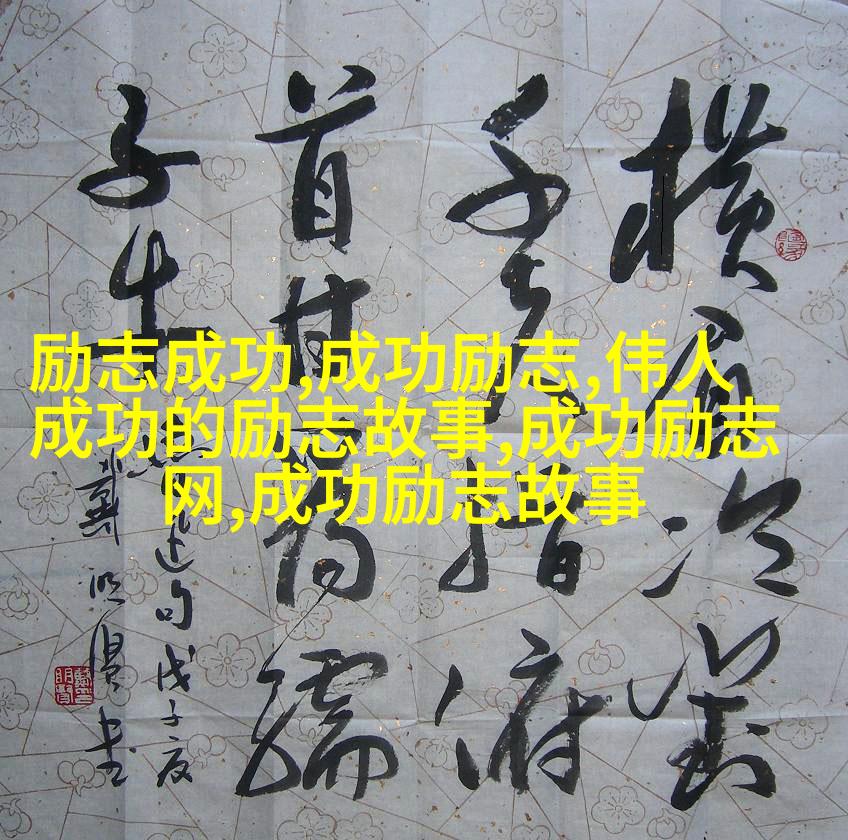 励志成功,成功励志,伟人
成功的励志故事,成功励志
网,成功励志故事
横眉冷對
千夫指俯
首甘为孺
子牛
迅句戊子夏
戴明贤书